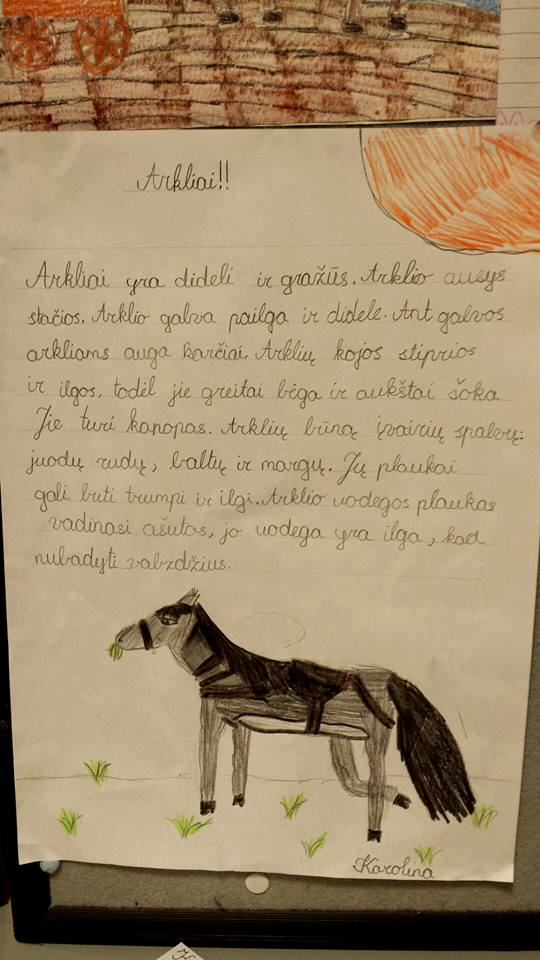 Arkliai!!
Arkliai yra dideli ir gražūs. Arklio ausys
stačios. Arklio galva pailga ir didelė. Ant galvos
arkliams auga karčiai. Arklių kojos stiprios
ir ilgos, todėl jie greitai bėga ir aukštai šoka
Jie turi kanopas. Arklių būną įvairių spalvų:
juodų rudų, baltų ir margų. Jų plaukai
gali buti trumpi ir ilgi. Arklio uodegos plaukas
vadinasi ašutas, jo uodega yra ilga, kad
nubadyti vabzdžius.
Karolina